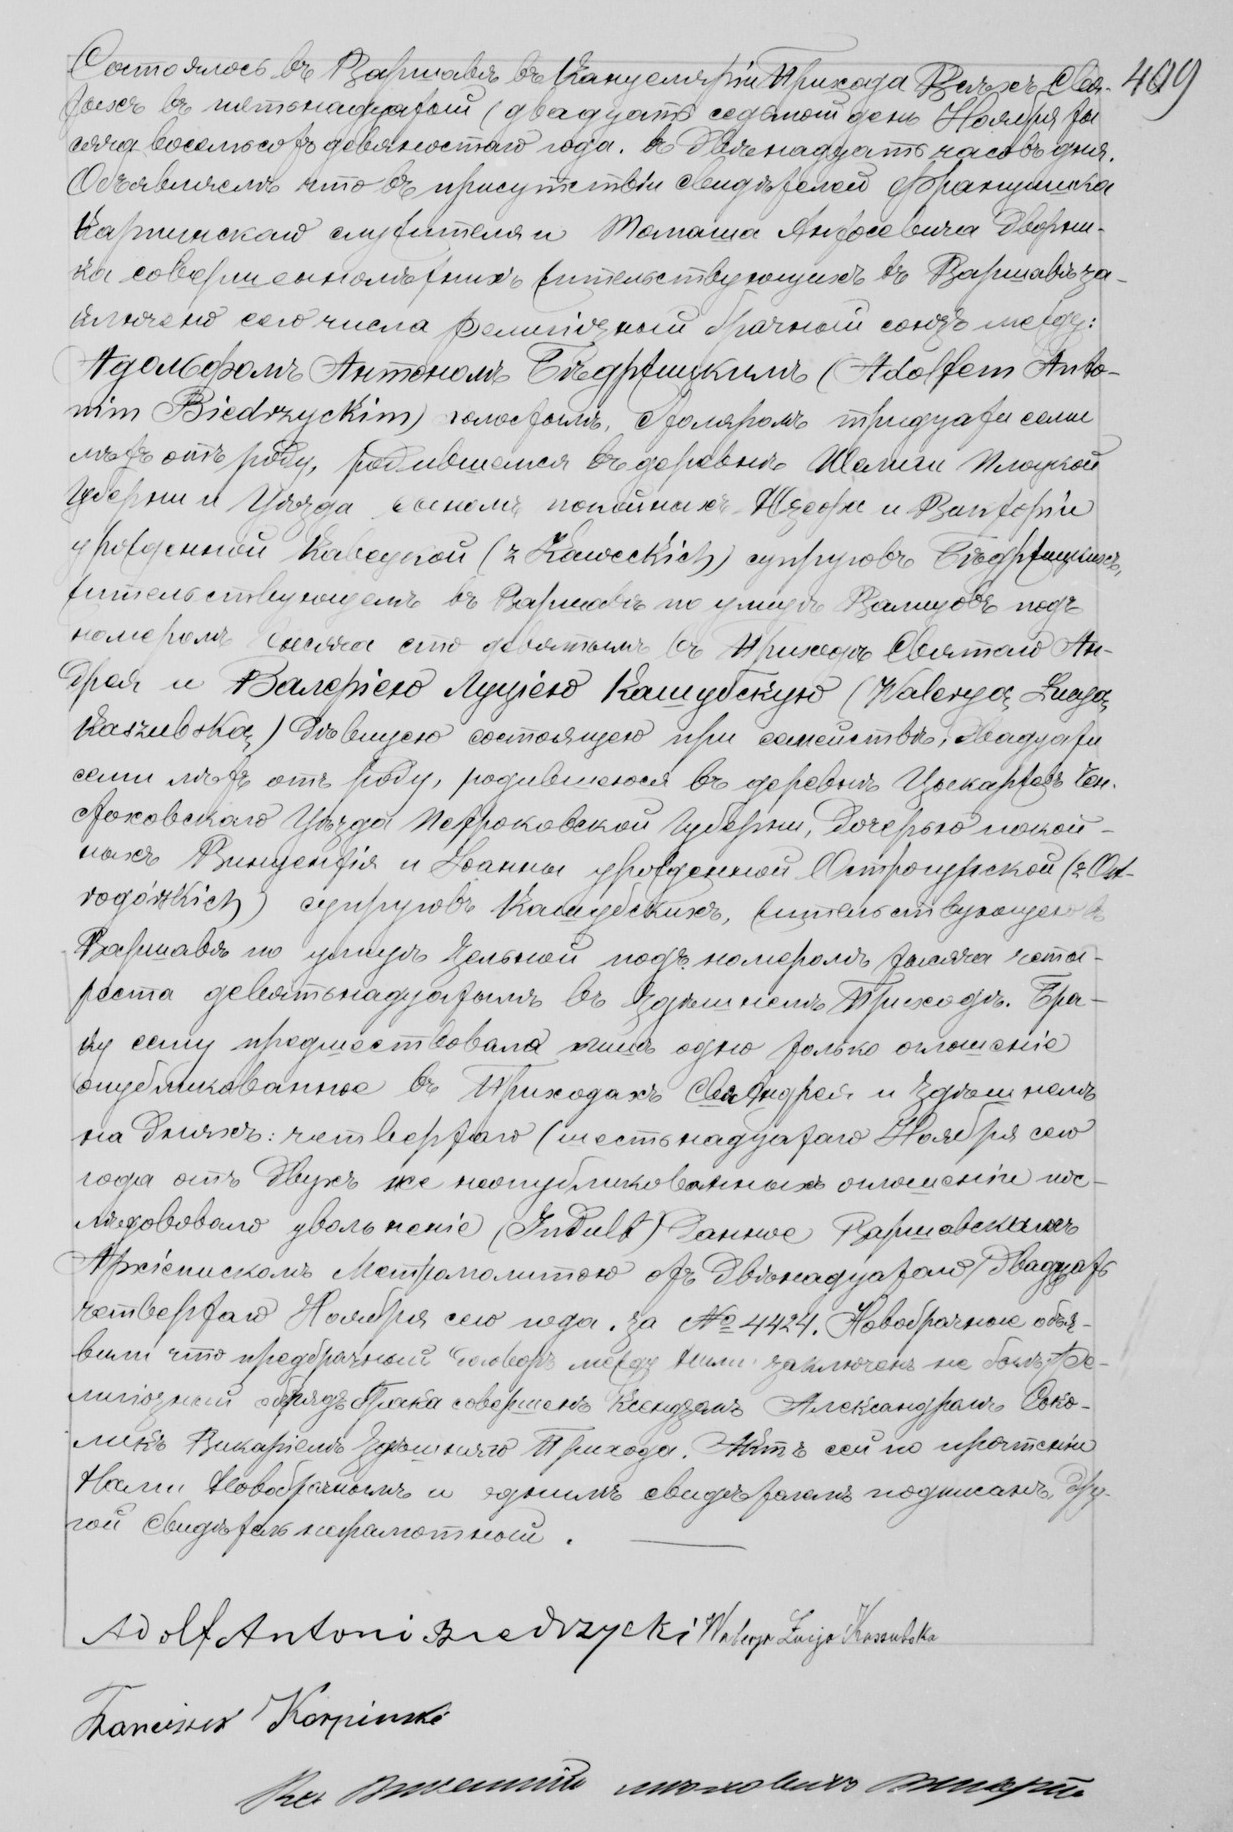 Состоялось въ Варшавѣ въ Канцеляріи Прихода Всѣхъ Свя- 499
тыхъ въ пятьнадцатый (двадцать седьмой день Ноября ты
сяча восемьсотъ девяностаго года. въ Двѣнадцать часовъ дня.
Объявляемъ что въ присутствіи свидѣтелей Францишка
Карпинскаго служителя и Томаша Дворни-
ка совершеннолѣтнихъ жительствующихъ въ Варшавѣ за-
ключено сего числа религіозный брачный союзъ между:
Адольфомъ Антономъ Бѣдржицкимъ (Adolfem Anto-
nim Biedrzyckim) холостымъ, столяромъ тридцати семи
лѣтъ отъ роду, родившемся въ деревнѣ Шелиги Плоцкой
Губерніи и Уѣзда сыномъ покойныхъ Юзефа и Викторіи
урожденной Кавецкой (z Kaweckich) супруговъ Бѣдржицкихъ,
жительствующемъ въ Варшавѣ по улицѣ Валицовъ подъ
номеромъ тысяча сто девятымъ въ Приходѣ Святаго Ан-
дрея и Валеріею Луціею Кашубскую (Waleryą Lucyą
Kaszubską) Дѣвицею состоящею при семействѣ, двадцати
семи лѣтъ отъ роду, родившеюся въ деревнѣ Чен-
стоховскаго Уѣзда Петроковской Губерніи, Дочерью покой-
ныхъ Винцентія и Іоанны урожденной Острогурской (z Ost-
rogórskich) супруговъ Кашубскихъ, жительствующею въ
Варшавѣ по улицѣ Цельной подъ номеромъ тысяча четы-
реста девятьнадцатымъ въ здѣшнемъ Приходѣ. Бра-
ку сему предшествовало лишь одно только оглашеніе
опубликованное въ Приходахъ Свя. Андрея и здѣшнемъ
на Дняхъ: четвертаго (шестьнадцатаго Ноября сего
года отъ Двухъ же неопубликованныхъ оглашеній пос-
лѣдововало увольненіе (Indult) Данное Варшавскимъ
Архіепископомъ Метрополитою отъ Двѣнадцатаго/Двадцать
четвертаго Ноября сего года. за № 4424. Новобрачные объя-
вили что предбрачный договоръ между ними заключенъ не былъ. Ре-
лигіозный обрядъ Брака совершенъ Ксендзомъ Александромъ Соко-
ликъ Викаріемъ здѣшняго Прихода. Актъ сей по прочтеніи
Нами Новобрачнымъ и однимъ свидѣтелемъ подписанъ, Дру-
гой Свидѣтель неграмотный.
Adolf Antoni Biedrzycki Waleryja Lucyja Kaszubska
Franciszek Karpinski